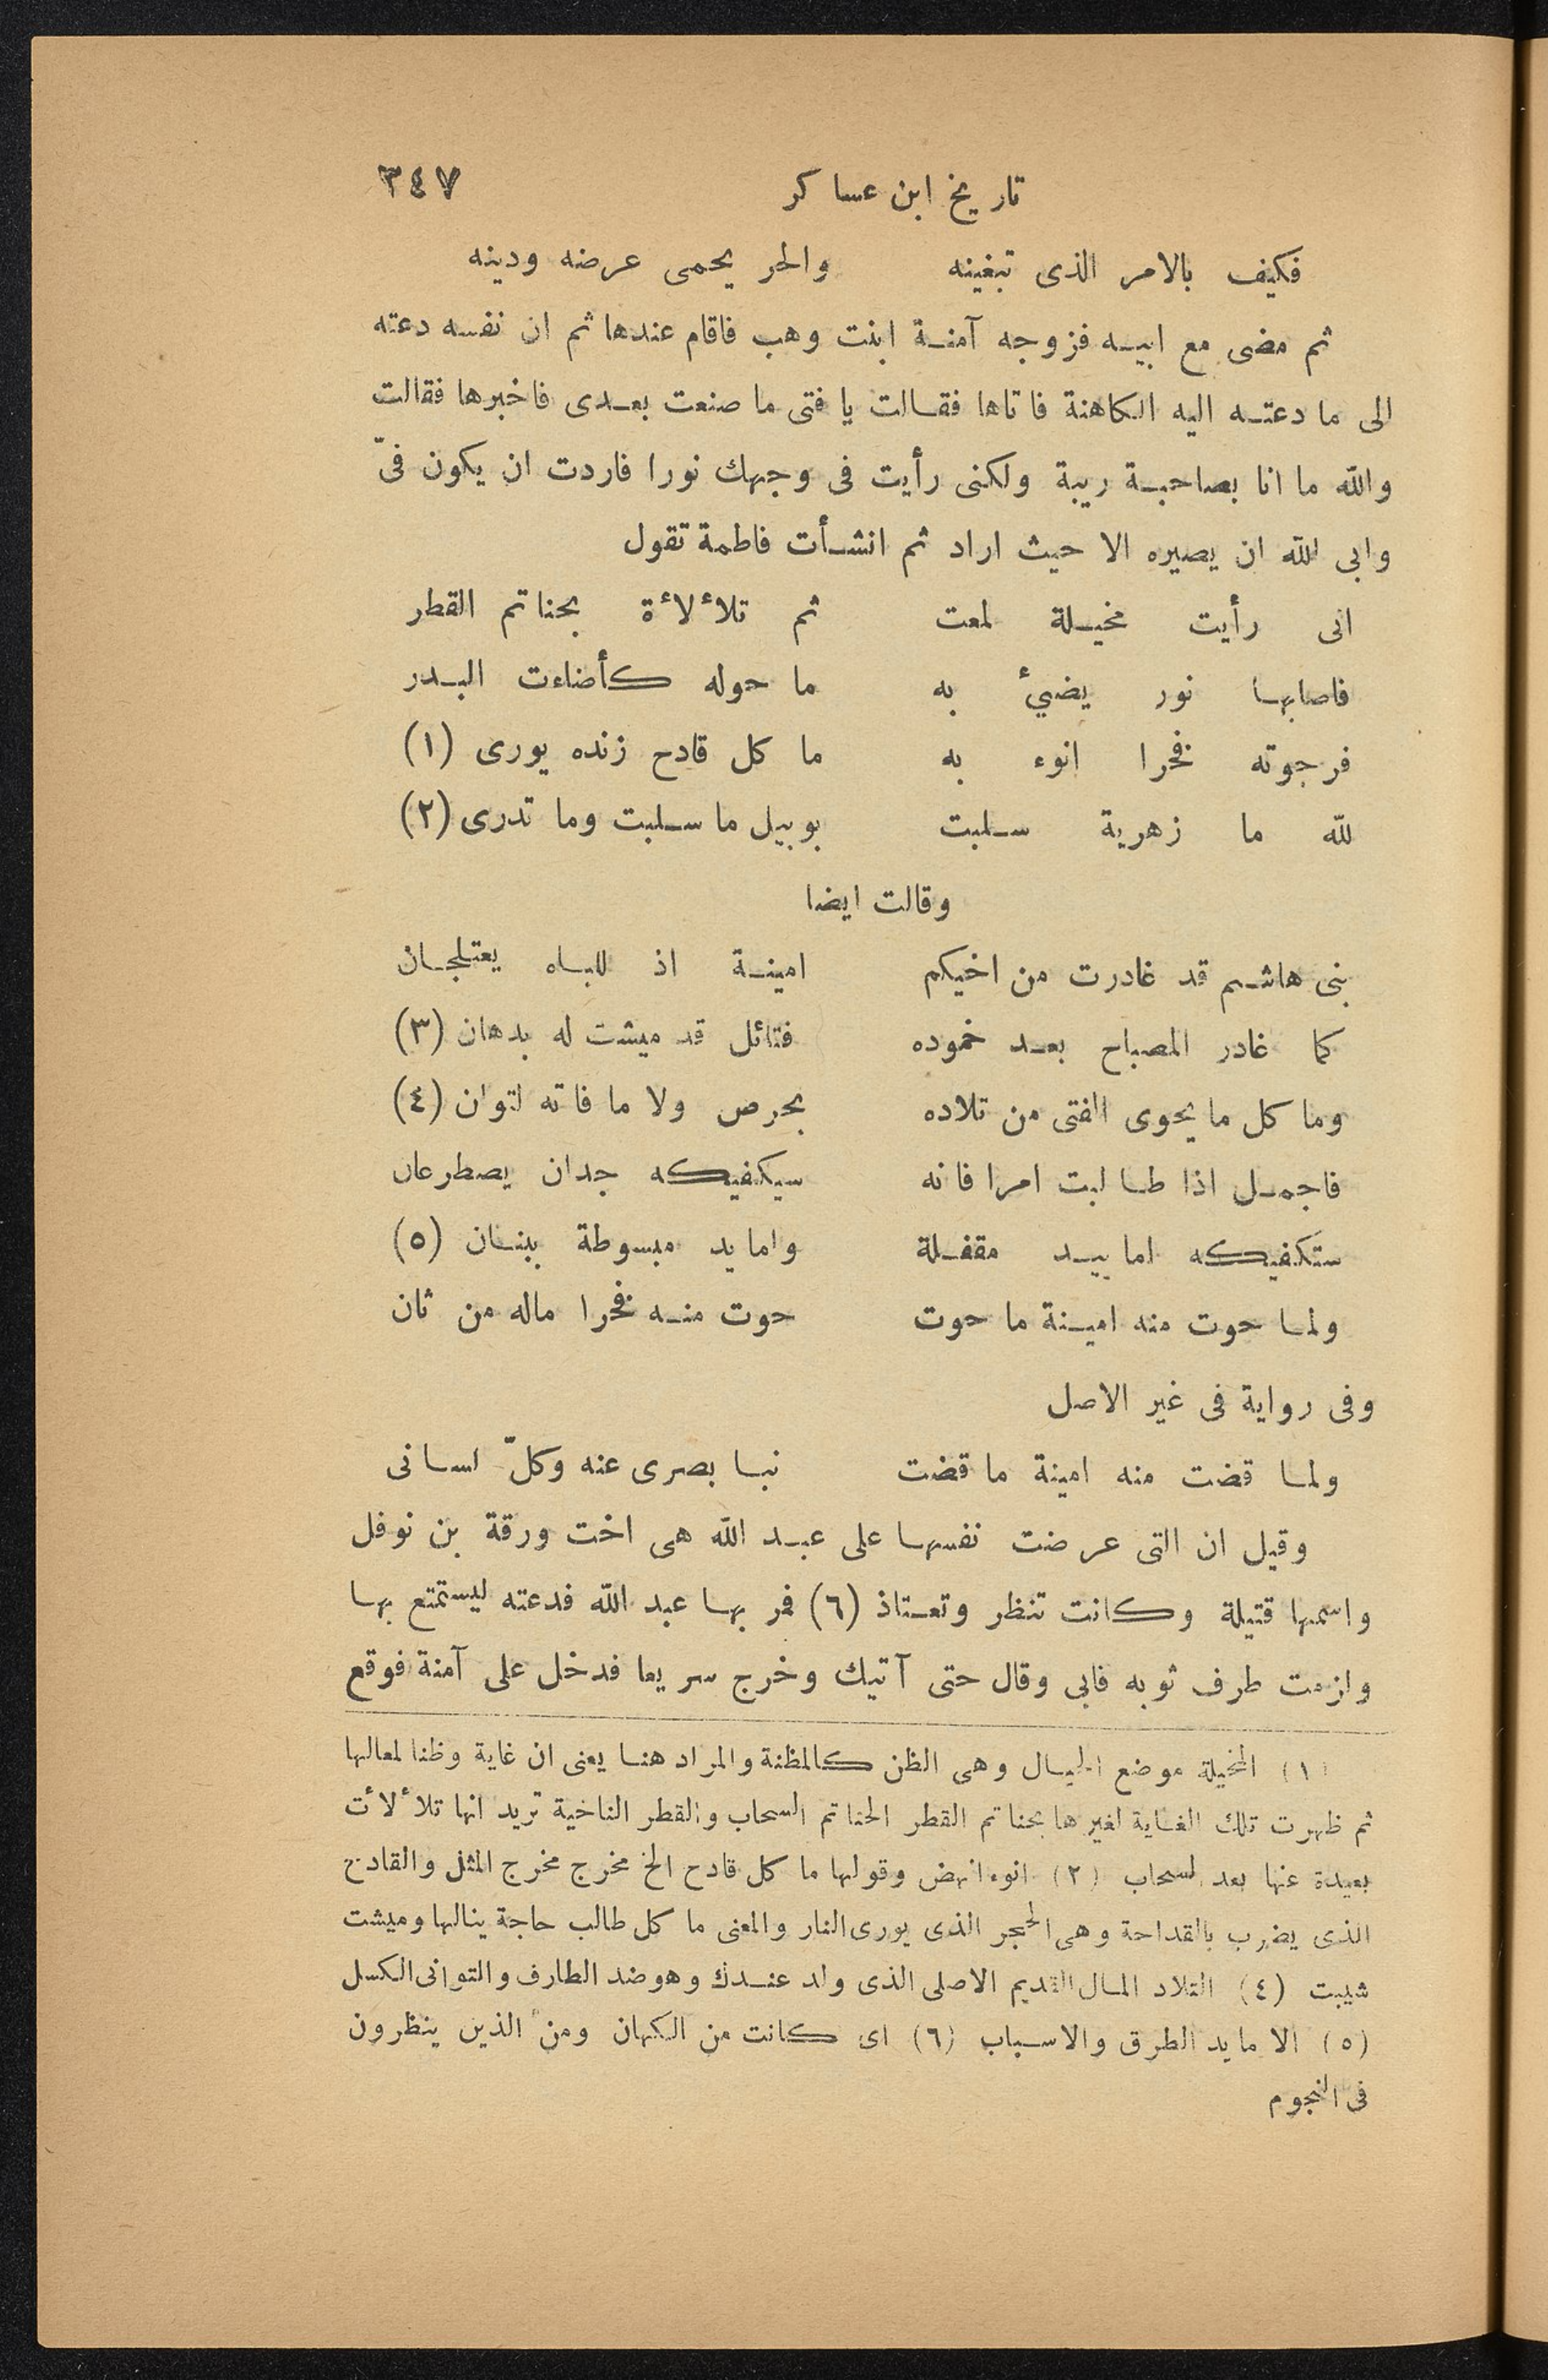 تاريخ ابن عساكر ٣٤٧
فكيف بالامر الذى تبغينه والحر يحمى عرضه ودينه
ثم مضى مع ابيه فزوجه آمنة ابنت وهب فاقام عندها ثم ان نفسه دعته
الى ما دعته اليه الكاهنة فاتاها فقالت يا فتى ما صنعت بعدى فاخبرها فقالت
والله ما انا بصاحبة ريبة ولكنى رأيت فى وجهك نورا فاردت ان يكون فىّ
وابى الله ان يصيره الا حيث اراد ثم انشأت فاطمة تقول
انى رأيت مخيلة لمعت ثم تلألأة بحناتم القطر
فاصابها نور يضئ به ما حوله كأضاءت البدر
فرجوته فخرا انوء به ما كل قادح زنده يورى (١)
لله ما زهرية سلبت بوبيل ما سلبت وما تدرى (٢)
وقالت ايضا
بنى هاشم قد غادرت من اخيكم امينة اذ للباه يعتلجان
كما غادر المصباح بعد خموده فتائل قد ميشت له بدهان (٣)
وما كل ما يحوى الفتى من تلاده بحرص ولا ما فاته لتوان (٤)
فاجمل اذا طالبت امرا فانه سيكفيكه جدان يصطرعان
ستكفيكه اما يد مقفلة واما يد مبسوطة ببنان (٥)
ولما حوت منه امينة ما حوت حوت منه فخرا ماله من ثان
وفى رواية فى غير الاصل
ولما قضت منه امينة ما قضت نبا بصرى عنه وكلّ لسانى
وقيل ان التى عرضت نفسها على عبد الله هى اخت ورقة بن نوفل
واسمها قتيلة وكانت تنظر وتعتاذ (٦) فمر بها عبد الله فدعته ليستمتع بها
ولزمت طرف ثوبه فابى وقال حتى آتيك وخرج سريعا فدخل على آمنة فوقع
(١) المخيلة موضع الخيال وهى الظن كالمظنة والمراد هنا يعنى ان غاية وظنا لمعالها
ثم ظهرت تلك الغاية لغيرها بحناتم القطر الحناتم السحاب والقطر الناخية تريد انها تلألأت
بعيدة عنها بعد السحاب (٢) انوء انهض وقولها ما كل قادح الخ مخرج مخرج المثل والقادح
الذى يضرب بالقداحة وهى الحجر الذى يورى النار والمعنى ما كل طالب حاجة ينالها وميشت
شيبت (٤) التلاد المال القديم الاصلى الذى ولد عندك وهو ضد الطارف والتوانى الكسل
(٥) الا ما يد الطرق والاسباب (٦) اى كانت من الكهان ومن الذين ينظرون
فى النجوم